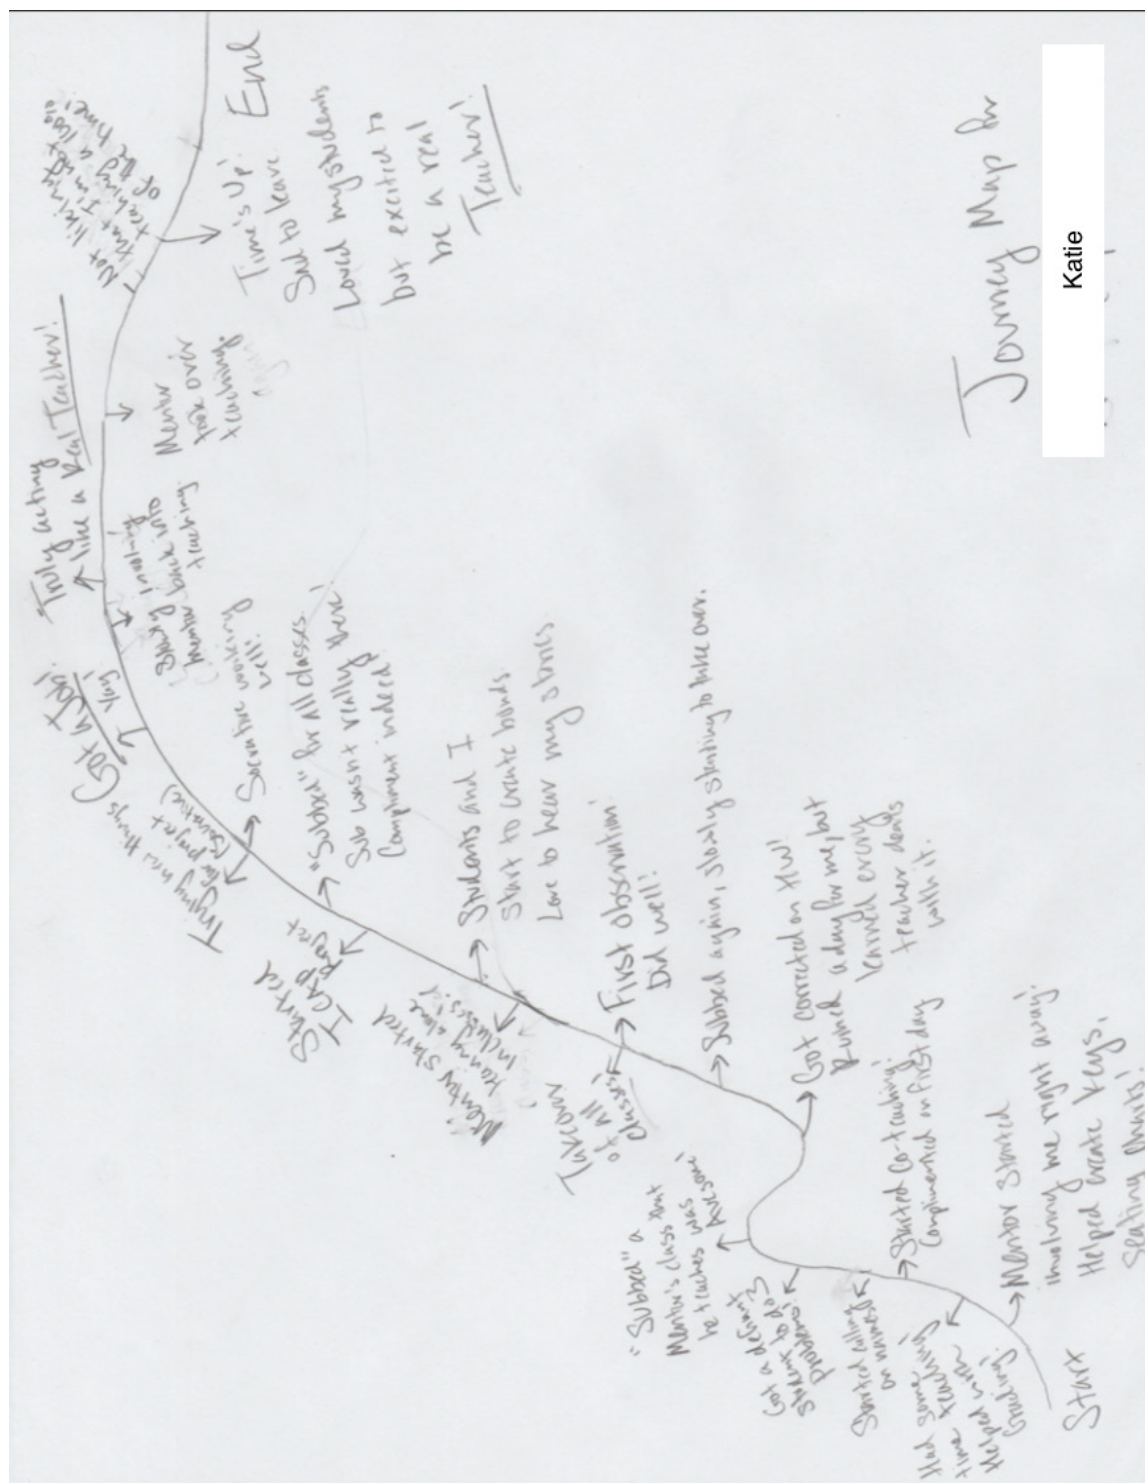 Journey Map for
Katie
Start
Mentor Started
involving me right away!
Helped create keys,
Seating Charts!
Had some
time teaching!
Helped with
Grading!
Started Co-teaching!
Complimented on first day
Started calling
on unnused
Got a defiant
Student to do 3
Problems!
"Subbed" a
Mentor's class that
he teaches was
Awesome!
Got corrected on HW!
Ruined a day for me, but
learned every
teacher deals
with it.
Subbed again, slowly starting to take over.
Takeover
of all
Classes!
First Observation!
Did well!
Mentor started
leaving alone
in classes!
Students and I
Start to create bonds
Love to hear my stories
Started
ICAP
Project
"Subbed" for all classes.
Sub wasn't really there!
Compliment indeed
Trying new things
for project
(Socrative)
Socrative working
well!
Got a Job!
Yay!
Slowly involving
mentor back into
teaching.
Truly acting
like a Real Teacher!
Mentor
took over
teaching.
again
Not liking
that I'm not
teaching 100%
of the time!
Time's Up!
Sad to leave.
Loved my students
but excited to
be a real
Teacher!
End